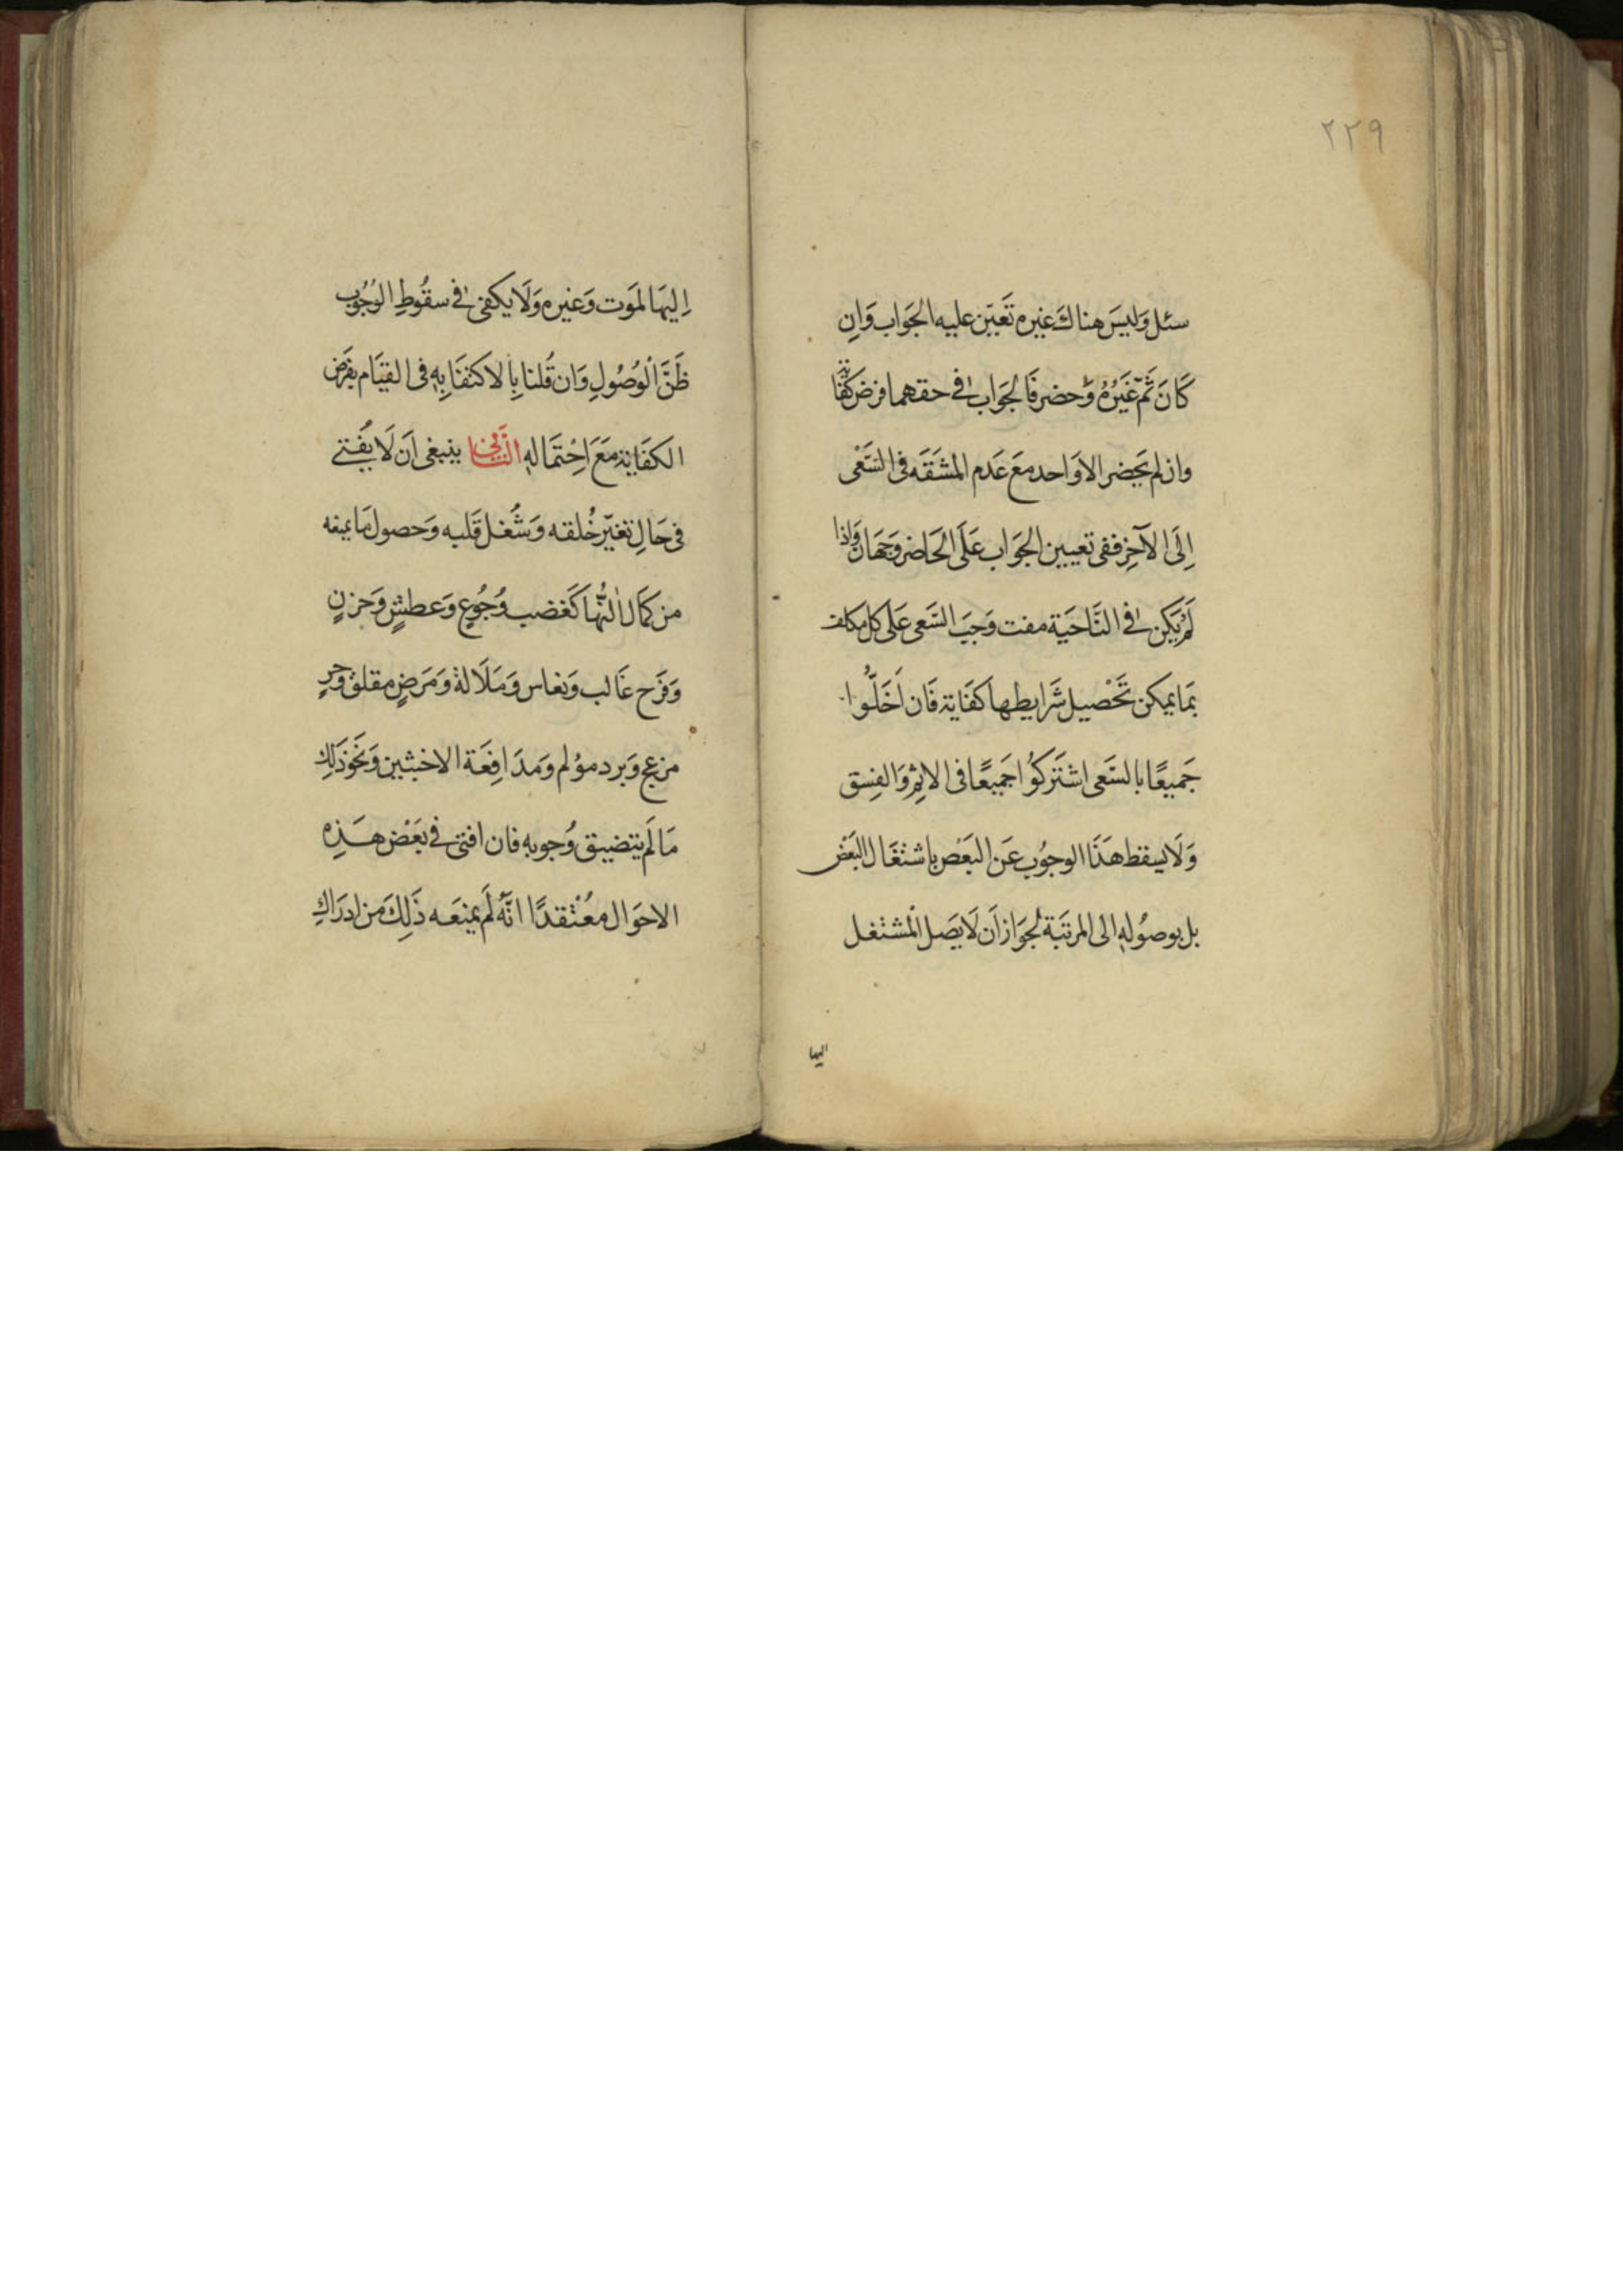 ٢٢٩
سئل وَليسَ هناكَ غيره تَعَيّن عليه الجَوَاب وَان
كَانَ ثَمّ غَيْرُهُ وَحضر فَالجَوَاب في حقهما فرض كفَاية
وان لم يحضر الا وَاحد مَع عَدم المشَقَه في السَّعْى
اِلَى الآخِر ففى تعيين الجَوَاب عَلَى الحَاضر وَجهَان وَاذا
لَمْ يَكن في النَّاحيَة مفت وَجبَ السَّعى عَلى كل مكلف
بمَا يمكن تَحْصيل شَرايطها كفَاية فَان اَخَلّوُا
جَميعًا بالسَّعى اشتَركوُا جَميعًا فى الاثم وَالفِسق
وَلَا يسقط هَذَا الوجوُب عَن البَعض باشتغَال البَعْض
بل بوصُوله الى المرتبَة لجوَاز اَن لَا يَصَل المشتغل
اليها
اِليهَا لموَت وَغيره وَلَا يكفى في سقُوطِ الوُجوُب
ظَنَّ الْوُصُولِ وَان قُلنا بِالاكتفَا بِهِ فى القيَام بفَرض
الكفَاية مَعَ اِحْتمَاله الثَّانِى ينبغى اَن لَا يُفْتى
فى حَالِ تغيّر خُلقه وَشُغل قَلبه وَحصول مَا يمنعه
من كمَال التُّهَا كَغضب وَجُوعٍ وَعطشٍ وَحزنٍ
وَفرَح غَالب وَنعَاس وَمَلَالة وَمَرَضٍ مقلق وَحرٍ
مزعج وَبرد موُلم وَمدَافِعَة الاخبثين وَنَحوَ ذَلِكَ
مَا لَم يتضيق وُجوبه فان افتى في بَعْض هَذِه
الاحوَال مُعْتقدًا انَّهُ لَم يمنعَه ذَلِكَ من ادرَاكِ